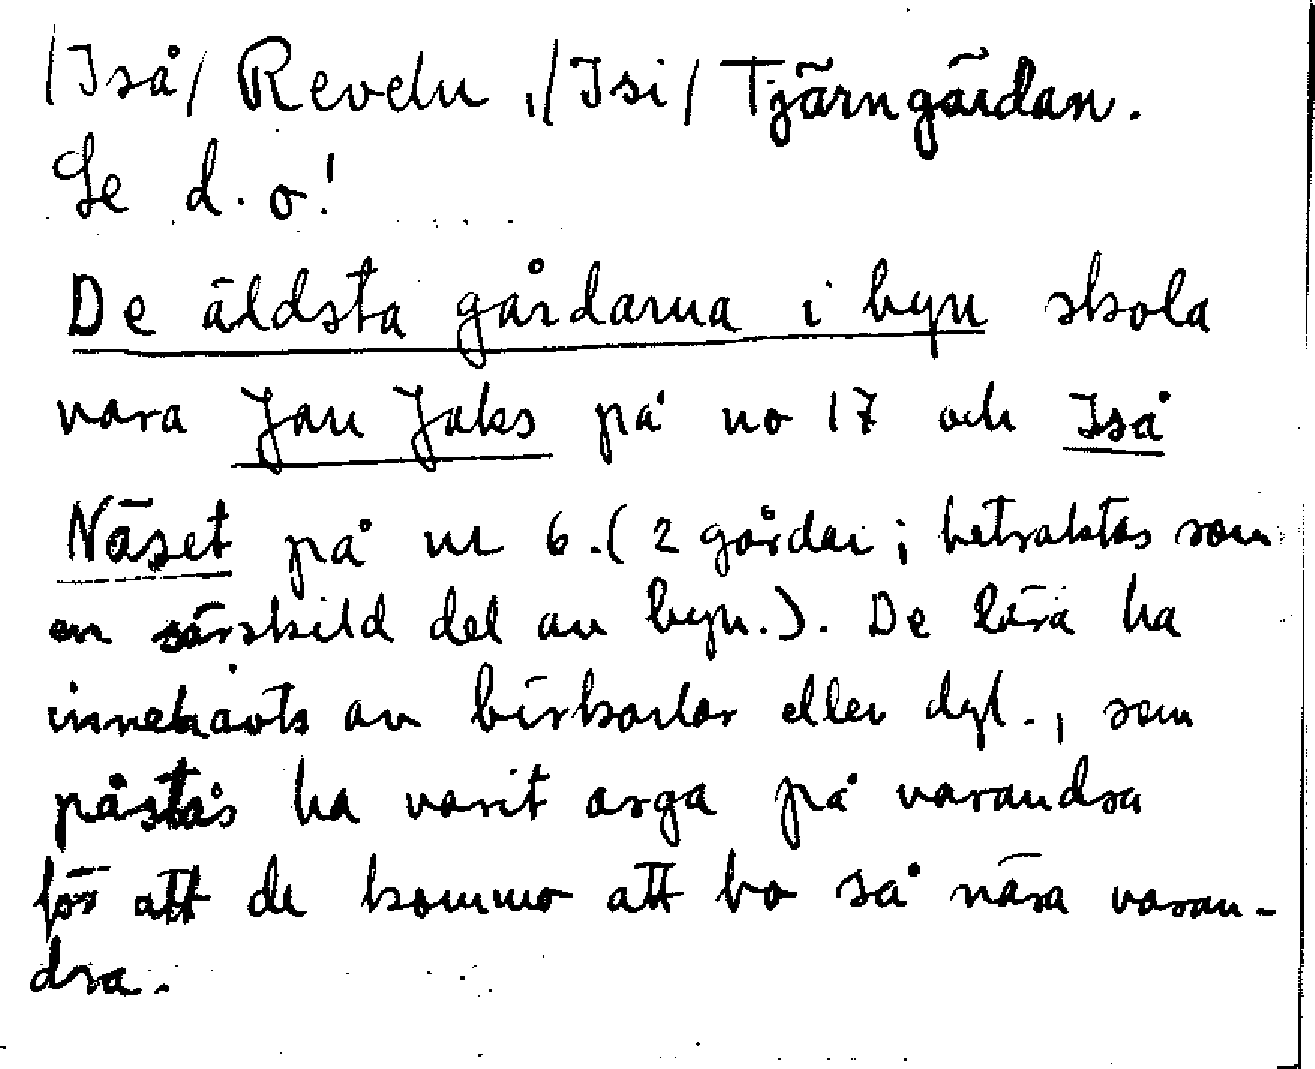 /Iså/ Reveln, /Isi/ Tjärngårdan.
Se d. o!
De äldsta gårdarna i byn skola
vara Jan Jaks på no 17 och Iså
Näset på nr 6. (2 gårdar; betraktas som
en särskild del av byn.). De lära ha
innehavts av birkarlar eller dyl., som
påstås ha varit arga på varandra
för att de kommo att bo så nära varan-
dra.